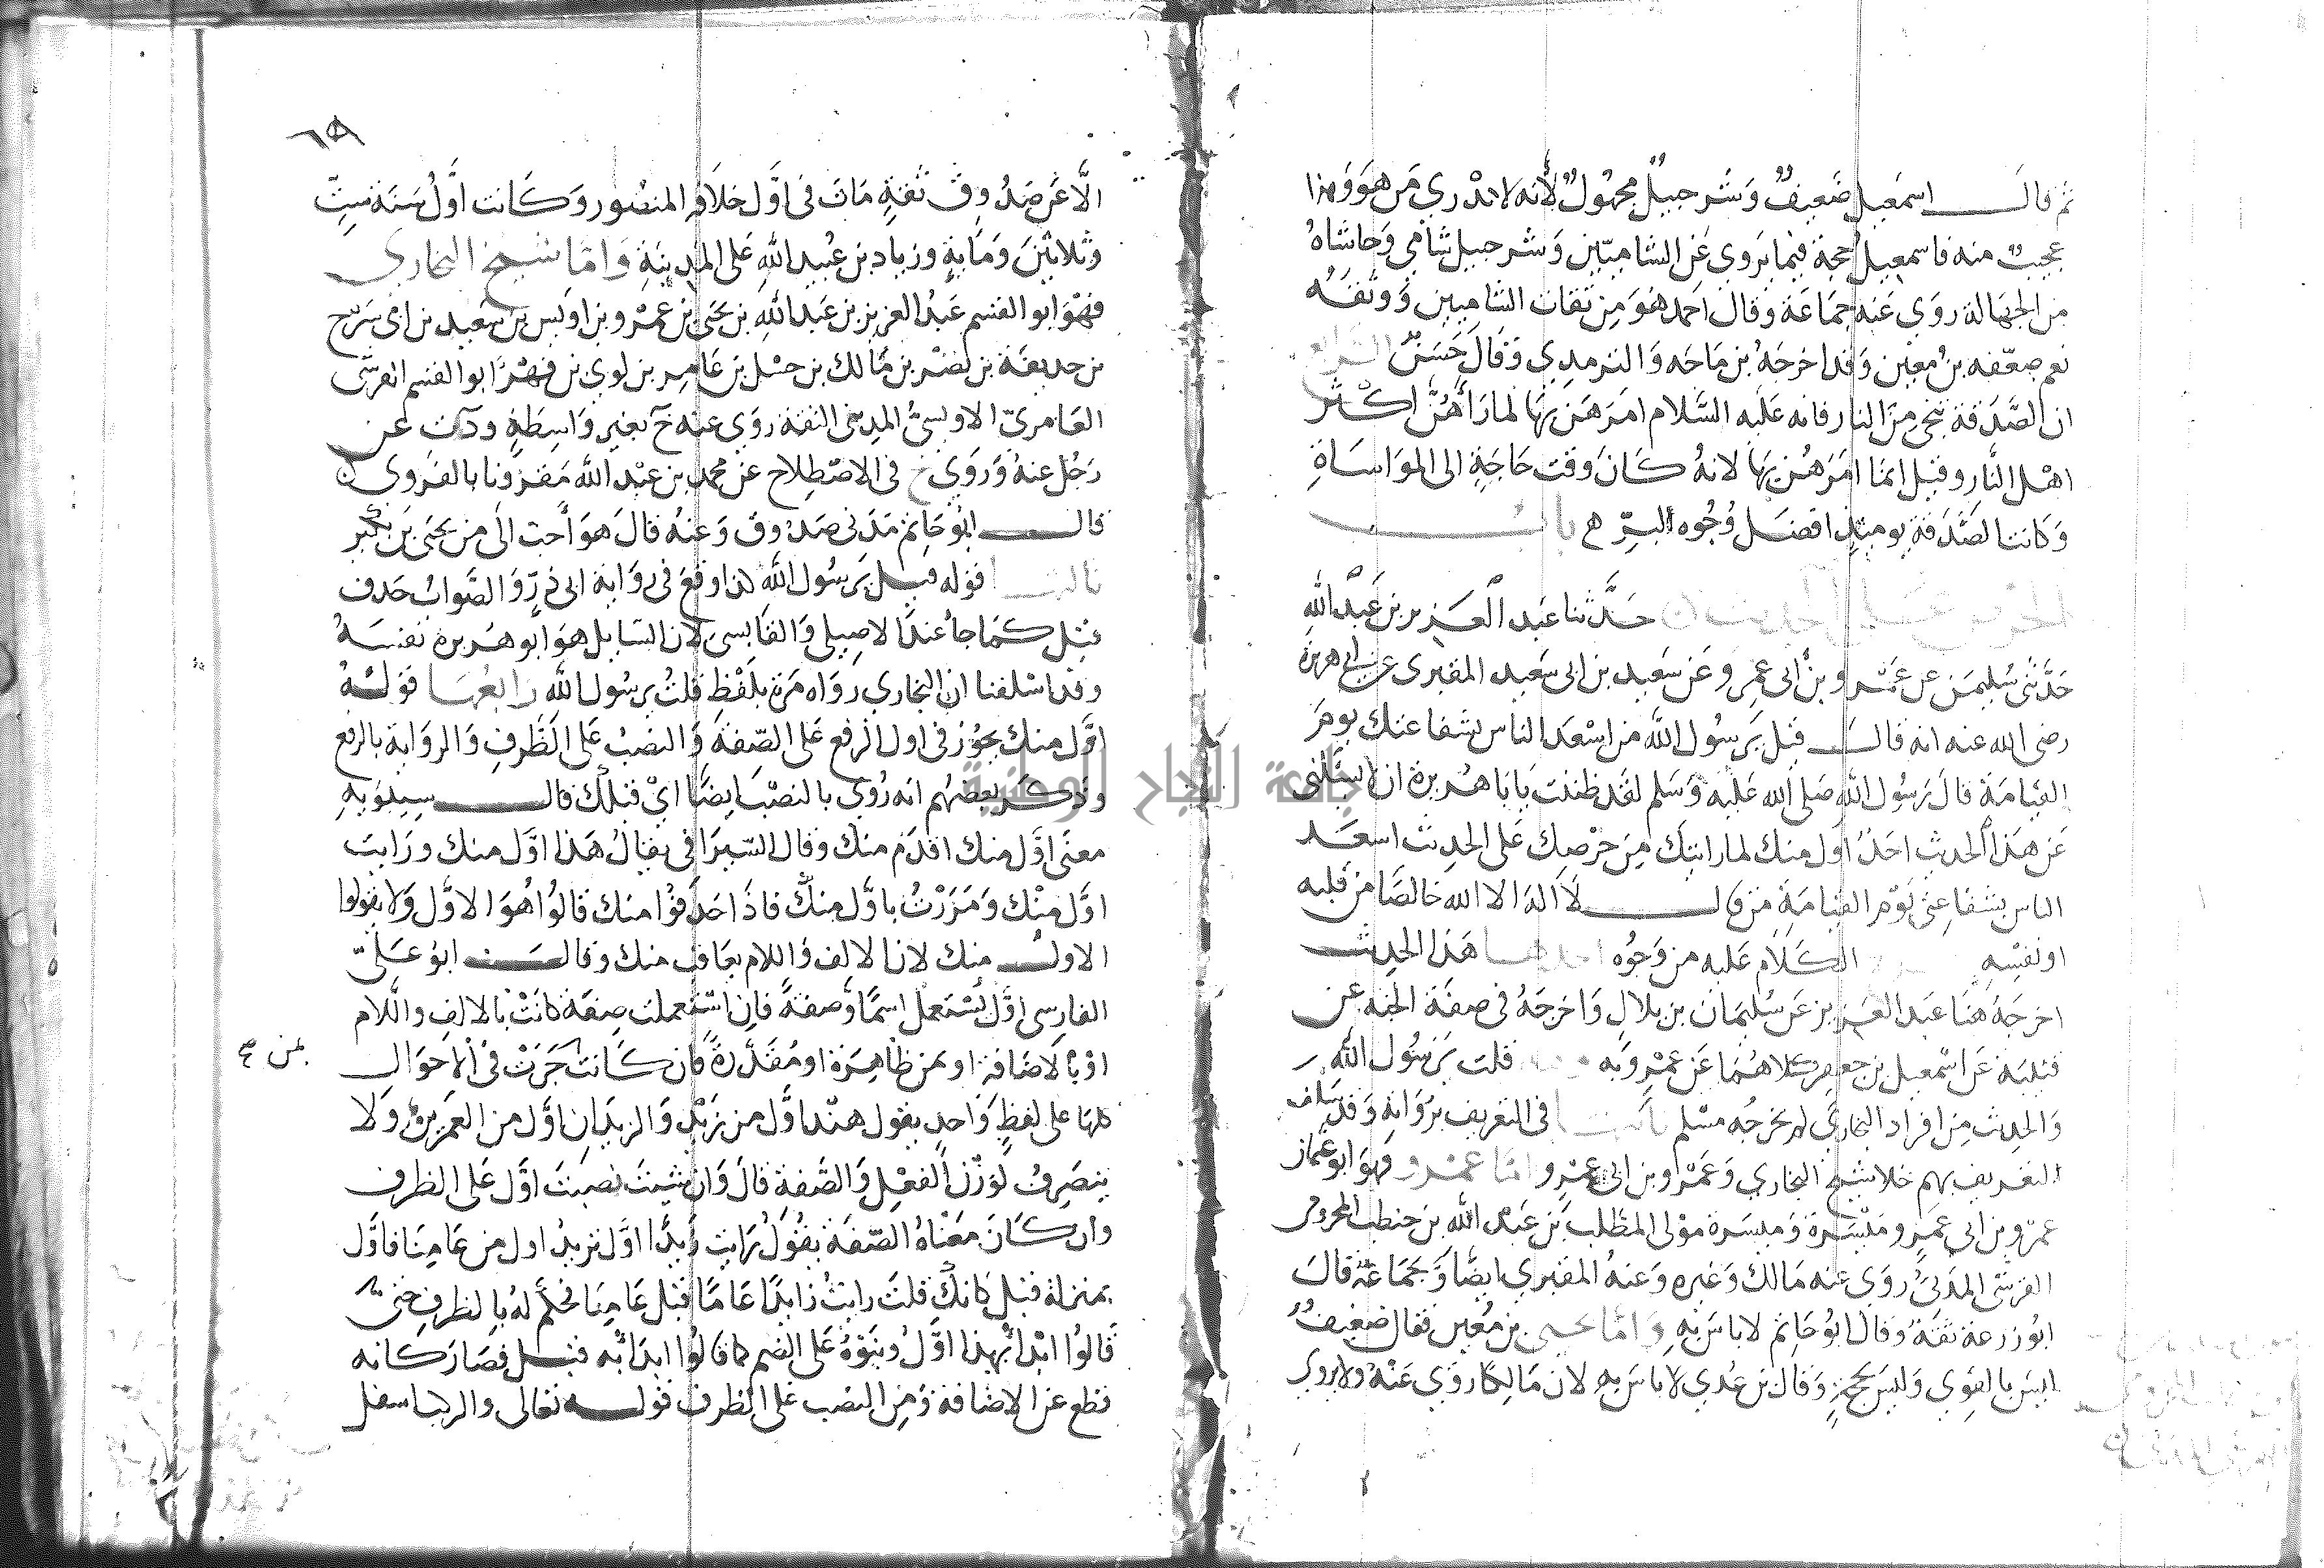 ثم قال اسمعيل ضعيف وشرحبيل مجهول لأنه لا ندري من هو وهذا
عجيب منه فاسمعيل حجة فيما يروي عن الشاميين وشرحبيل شامي وحاشاه
من الجهالة روي عنه جماعة وقال احمد هو من ثقات الشاميين ووثقه
نعم ضعفه بن معين وقد اخرجه بن ماجه والترمدي وقال حسن الرابع
ان الصدقة تنجي من النار فانه عليه السلام امرهن بها لما رأهن اكثر
اهل النار وقيل انما امرهن بها لانه كان وقت حاجة الى المواساة
وكانت الصدقة يوميذ افضل وجوه البر باب
حدثنا عبد العزيز بن عبد الله
حدثني سليمن عن عمرو بن أبي عمرو عن سعيد بن ابي سعيد المقبري عن ابي هريرة
رضى الله عنه انه قال قيل يرسول الله من اسعد الناس بشفاعتك يوم
القيامة قال رسول الله صلى الله عليه وسلم لقد ظننت يابا هريرة ان لا يسئلني
عن هذا الحديث احد اول منك لما رايتك من حرصك على الحديث اسعد
الناس بشفاعتي يوم القيامة من قال لا اله الا الله خالصا من قلبه
او نفسه الكلام عليه من وجوه احدها هذا الحديث
اخرجه هنا عبد العزيز عن سليمان بن بلال واخرجه في صفة الجنة عن
قتيبة عن اسمعيل بن جعفر كلاهما عن عمرو به قلت يرسول الله
والحديث من افراد البخاري لم يخرجه مسلم ثانيها في التعريف برواته وقد سلف
التعريف بهم خلا شيخ البخاري وعمرو بن ابي عمرو اما عمرو فهو ابو عثمان
عمرو بن ابي عمرو ميسرة وميسرة مولى المطلب بن عبد الله بن حنطب المخزومي
القرشي المدني روى عنه مالك وغيره وعنه المقبري ايضا وجماعة قال
ابو زرعة ثقة وقال ابو حاتم لا باس به واما يحيى بن معين فقال ضعيف
ليس بالقوي وليس بحجة وقال بن عدي لا باس به لان مالكا روي عنه ولا يروي
٦٥
الا عن صدوق ثقة مات في اول خلافة المنصور وكانت اول سنة ست
وثلاثين وماية وزياد بن عبيد الله على المدينة واما شيخ البخاري
فهو ابو القسم عبد العزيز بن عبد الله بن يحيى بن عمرو بن اويس بن سعيد بن ابي سرح
بن حديفة بن نصر بن مالك بن حسل بن عامر بن لوي بن فهر ابو القسم القرشي
العامري الاويسي المديني الثقة روي عنه خ بغير واسطة و د ت عن
رجل عنه وروي خ في الاصطلاح عن محمد بن عبد الله مقرونا بالفروي
قال ابو حاتم مدني صدوق وعنه قال هو أحب الي من يحيى بن بكير
ثالثها قوله قيل يرسول الله كذا وقع في رواية ابي ذر والصواب حدف
قيل كما جا عند الاصيلي والقابسي لان السايل هو ابو هريرة نفسه
وقد اسلفنا ان البخاري رواه مرة بلفظ قلت يرسول الله رابعها قوله
اول منك يجوز في اول الرفع على الصفة والنصب على الظرف والرواية بالرفع
وذكر بعضهم انه روي بالنصب ايضا اي قبلك قال سيبويه
معنى اول منك اقدم منك وقال السيرافي يقال هذا اول منك ورايت
اول منك ومررت باول منك فاذا حذفوا منك قالوا هو الاول ولا يقولوا
الاول منك لان الالف واللام يعاقب منك وقال ابو علي
الفارسي اول يستعمل اسما وصفة فان استعملت صفة كانت بالالف واللام
او بالاضافة او بمن ظاهرة او مقدرة فان كانت جرت في الاحوال
بمن
كلها على لفظ واحد يقول هند اول من زينب والزيدان اول من العمرين ولا
ينصرف لوزن الفعل والصفة قال وان شيت نصبت اول على الظرف
وان كان معناه الصفة يقول رايت زيدا اول تريد اول من عامنا فاول
بمنزلة قبل كانك قلت رايت زيدا عاما قبل عامنا فحكم له بالظرف حتى
قالوا ابدأ بهذا اول وبنوه على الضم كما قالوا ابدا به قبل فصار كانه
قطع عن الاضافة ومن النصب على الظرف قوله تعالى والركب اسفل
جامعة النجاح الوطنية